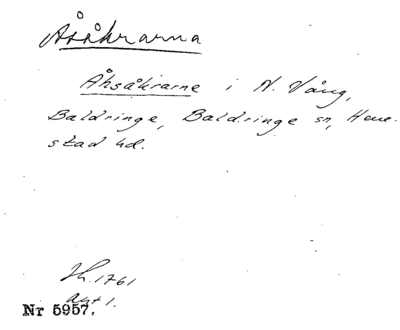 Åsåkrarna
Åhsåkrarne i N. Vång,
Baldringe, Baldringe sn, Herre-
stad hd.
Sk. 1761
akt 1.
Nr 5957.